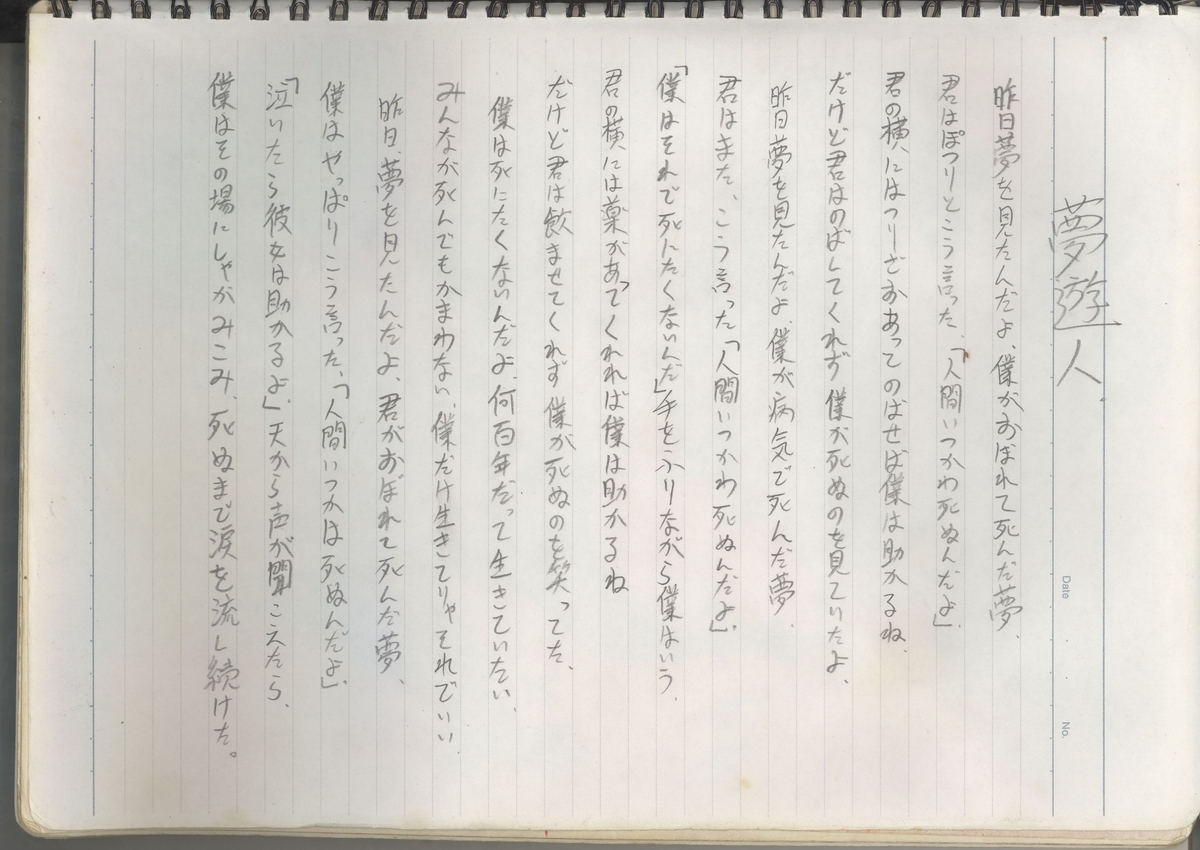 夢遊人
昨日夢を見たんだよ、僕がおぼれて死んだ夢、
君はぽつりとこう言った、「人間いつかわ死ぬんだよ」
君の横にはつりざおあってのばせば僕は助かるね、
だけど君はのばしてくれず僕が死ぬのを見ていたよ、
昨日夢を見たんだよ、僕が病気で死んだ夢、
君はまた、こう言った「人間いつかわ死ぬんだよ」、
「僕はそれで死にたくないんだ」手をふりながら僕はいう、
君の横には薬があってくれれば僕は助かるね
だけど君は飲ませてくれず僕が死ぬのを笑ってた、
僕は死にたくないんだよ何百年だって生きていたい、
みんなが死んでもかまわない、僕だけ生きてりゃそれでいい
昨日夢を見たんだよ、君がおぼれて死んだ夢、
僕はやっぱりこう言った、「人間いつかは死ぬんだよ」、
「泣いたら彼女は助かるよ」天から声が聞こえたら、
僕はその場にしゃがみこみ、死ぬまで涙を流し続けた。
Date
No.